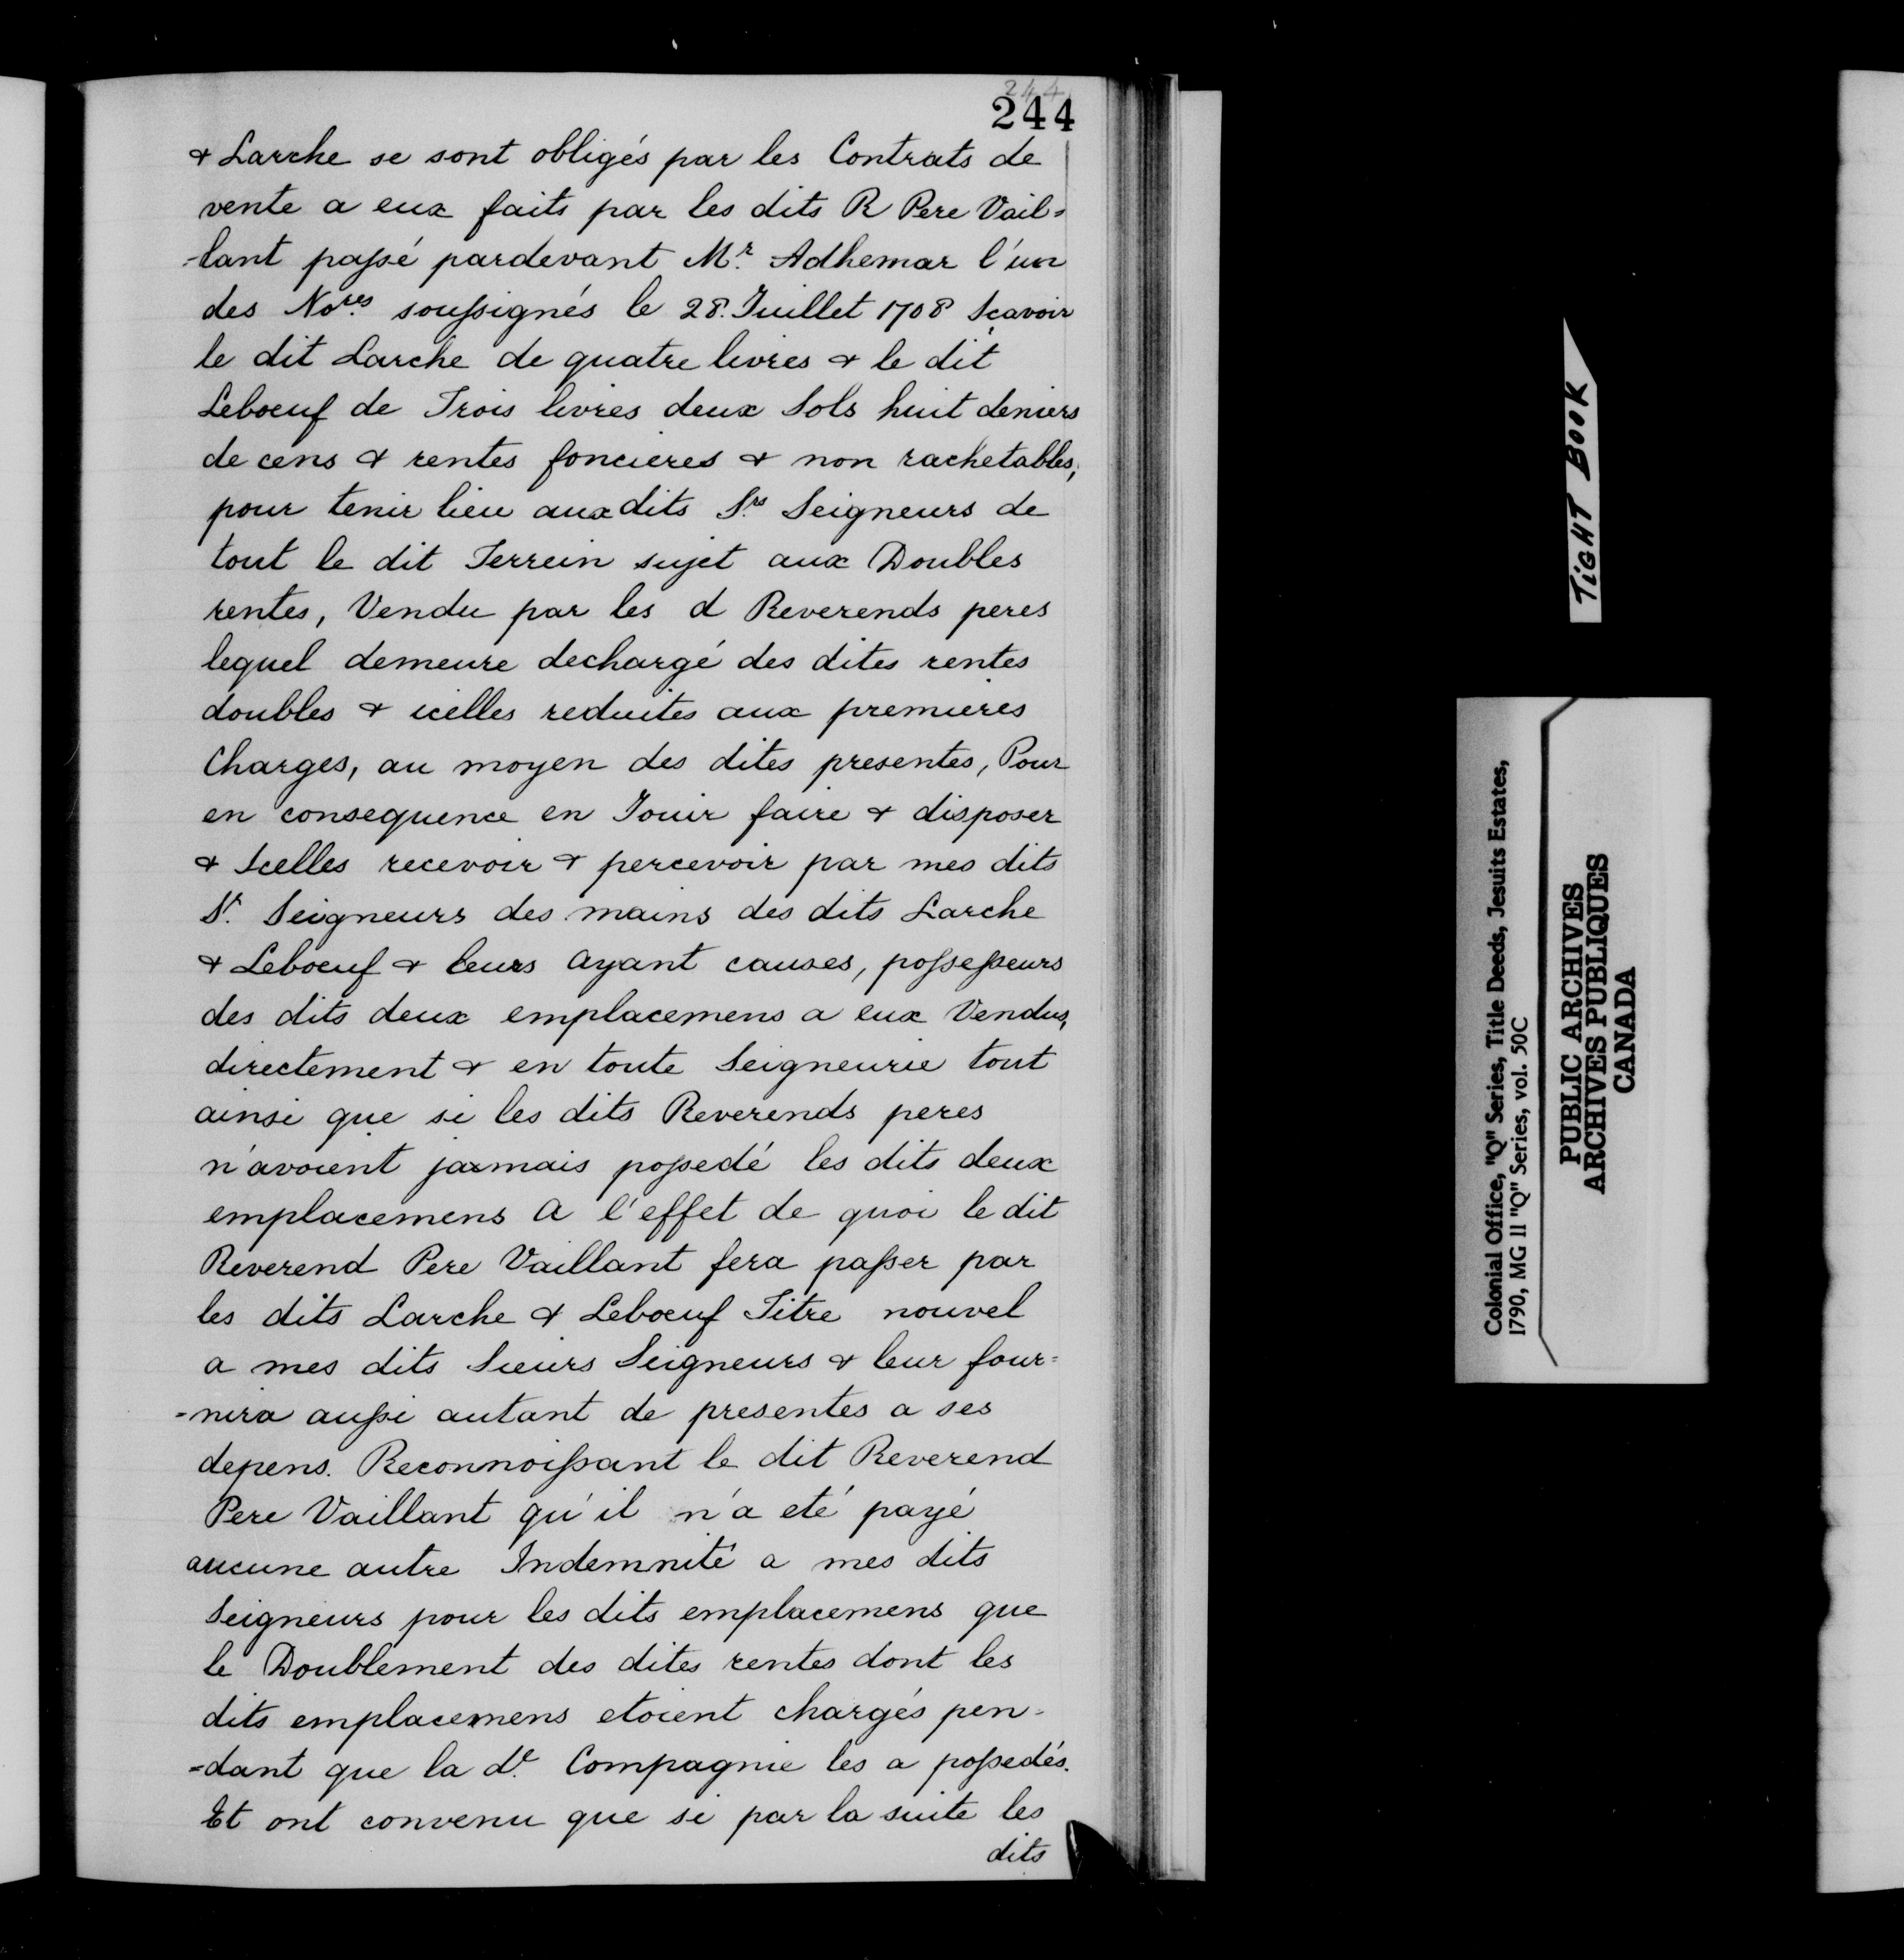 244
244
& Larche se sont obligés par les Contrats de
vente a eux faits par les dits R Pere Vail=
-lant passé pardevant Mr. Adhemar l'un
des Nores. soussignés le 28. Juillet 1708 Sçavoir
le dit Larche de quatre livres & le dit
Leboeuf de Trois livres deux Sols huit deniers
de cens & rentes foncieres & non rachetables,
pour tenir lieu aux dits Srs Seigneurs de
tout le dit Terrein sujet aux Doubles
rentes, Vendu par les d Reverends peres
lequel demeure dechargé des dites rentes
doubles & icelles reduites aux premieres
Charges, au moyen des dites presentes, Pour
en consequence en Jouir faire & disposer
& Icelles recevoir & percevoir par mes dits
Sr. Seigneurs des mains des dits Larche
& Leboeuf & leurs ayant causes, possesseurs
des dits deux emplacemens a eux Vendus,
directement & en toute Seigneurie tout
ainsi que si les dits Reverends peres
n'avoient jamais possedé les dits deux
emplacemens a l'effet de quoi le dit
Reverend Pere Vaillant fera passer par
les dits Larche & Leboeuf Titre nouvel
a mes dits Sieurs Seigneurs & leur four=
=nira aussi autant de presentes a ses
depens. Reconnoissant le dit Reverend
Pere Vaillant qu'il n'a eté payé
aucune autre Indemnité a mes dits
Seigneurs pour les dits emplacemens que
le Doublement des dites rentes dont les
dits emplacemens etoient chargés pen=
=dant que la de. Compagnie les a possedés.
Et ont convenu que si par la suite les
dits
TiGHT BOOK
Colonial Office, "Q" Series, Title Deeds, Jesuits Estates,
1790, MG 11 "Q" Series, vol. 50C
PUBLIC ARCHIVES
ARCHIVES PUBLIQUES
CANADA